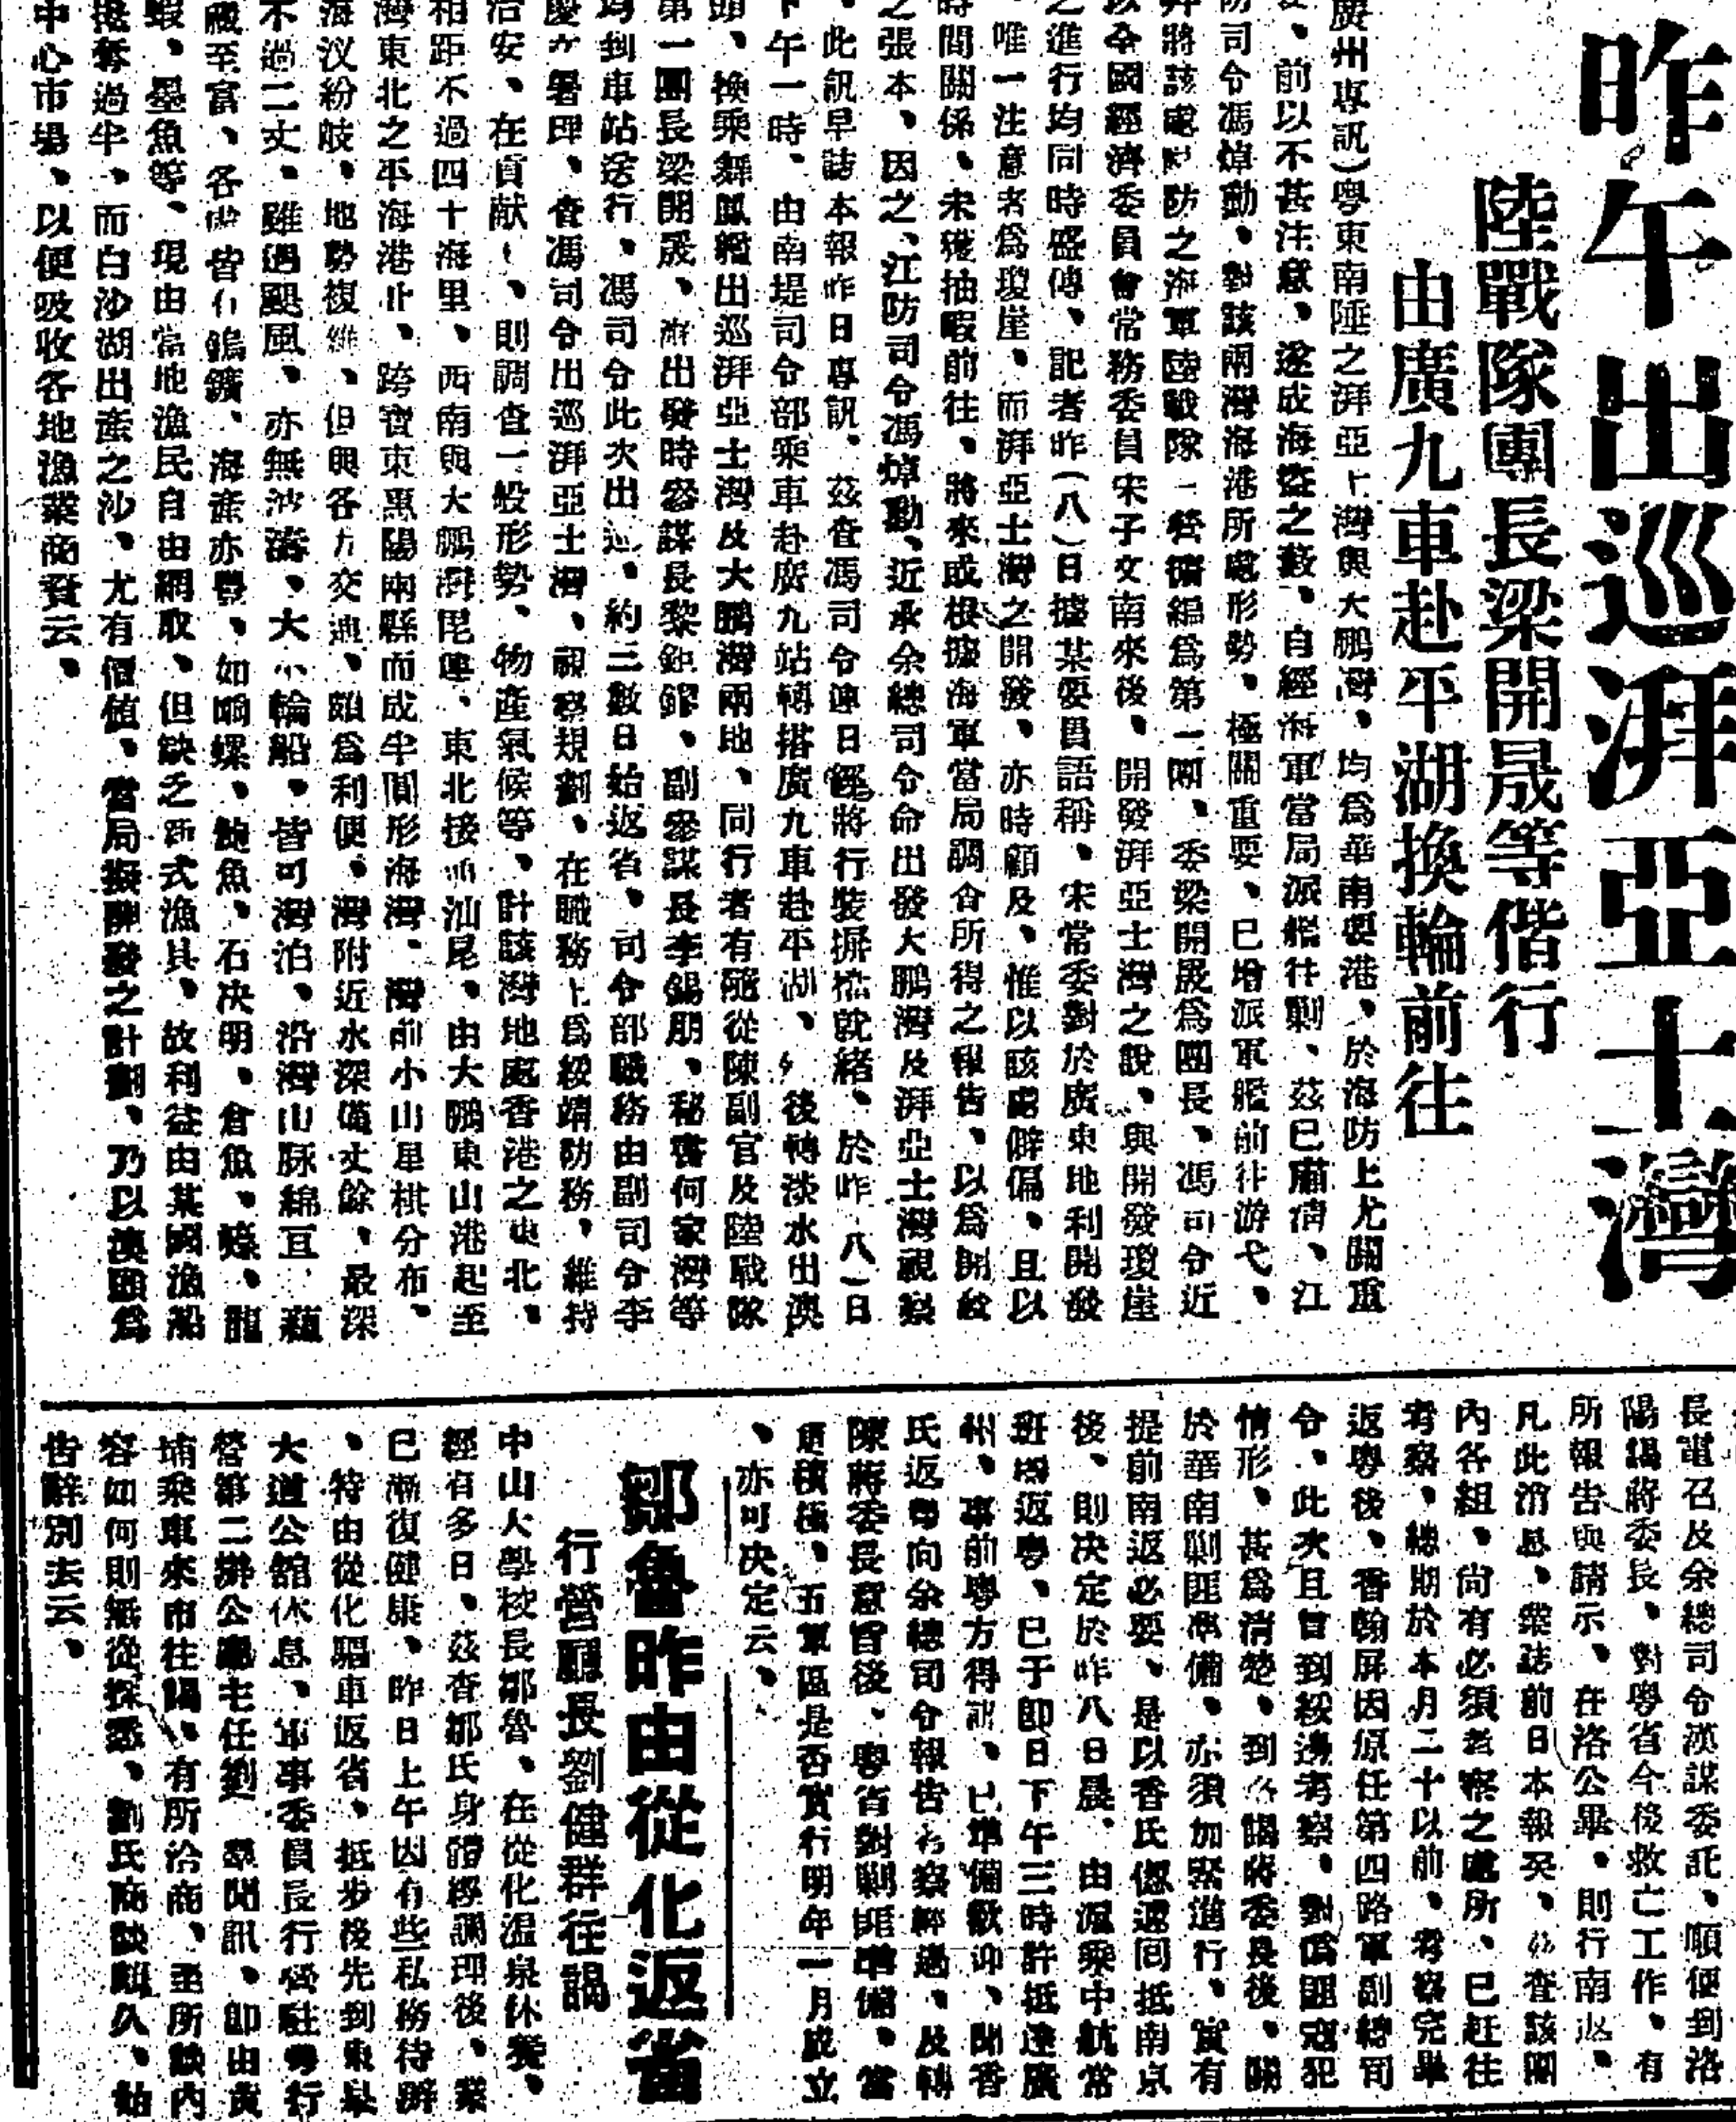 昨午出巡湃亞士灣
陸戰隊團長梁開晟等偕行
由廣九車赴平湖換輪前往
廣州專訊)粵東南陲之湃亞士灣與大鵬灣、均爲華南要港、於海防上尤關重
、前以不甚注意、遂成海盜之藪、自經海軍當局派艦往剿、茲已肅清、江
防司令馮焯勳、對該兩灣海港所處形勢、極關重要、已增派軍艦前往游弋、
將該處防之海軍陸戰隊一營擴編爲第一團、委梁開晟爲團長、馮司令近
以全國經濟委員會常務委員宋子文南來後、開發湃亞士灣之說、與開發瓊崖
之進行均同時盛傳、記者昨(八)日據某要員語稱、宋常委對於廣東地利開發
、唯一注意者爲瓊崖、而湃亞士灣之開發、亦時顧及、惟以該處僻偏、且以
時間關係、未獲抽暇前往、將來或根據海軍當局調查所得之報告、以爲開發
之張本、因之、江防司令馮焯勳、近承余總司令命出發大鵬灣及湃亞士灣視察
、此訊早誌本報昨日專訊、茲查馮司令連日經將行裝摒擋就緒、於昨(八)日
下午一時、由南堤司令部乘車赴廣九站轉搭廣九車赴平湖、後轉淡水出澳
頭、換乘舞鳳艦出巡湃亞士灣及大鵬灣兩地、同行者有隨從陳副官及陸戰隊
第一團長梁開晟、出發時參謀長黎鉅鏐、副參謀長李錫朋、秘書何家灣等
均到車站送行、馮司令此次出巡、約三數日始返省、司令部職務由副司令李
慶文署理、查馮司令出巡湃亞士灣、視察規劃、在職務上爲綏靖防務、維持
治安、在貢献、則調查一般形勢、物產氣候等、計該灣地處香港之東北、
相距不過四十海里、西南與大鵬灣毘連、東北接汕尾、由大鵬東山港起至
灣東北之平海港止、跨寶東惠陽兩縣而成半圓形海灣、灣前小山星棋分布、
海汊紛歧、地勢複雜、但與各方交通、頗爲利便、灣附近水深僅丈餘、最深
不過二丈、雖遇颶風、亦無波濤、大小輪船、皆可灣泊、沿灣山脉綿亙、蘊
藏至富、各皆有鎢鑛、海產亦豐、如响螺、鮑魚、石决明、倉魚、蠔、龍
蝦、墨魚等、現由當地漁民自由網取、但缺乏新式漁具、故利益由某國漁船
攘奪過半、而白沙湖出產之沙、尤有價值、當局擬開發之計劃、乃以澳頭爲
中心市場、以便吸收各地漁業商賈云、
長電召及余總司令漢謀委託、順便到洛
陽謁蔣委長、對粵省今後救亡工作、有
所報告與請示、在洛公畢、則行南返、
凡此消息、業誌前日本報矣、茲查該團
內各組、尚有必須考察之處所、已赶往
考察、總期於本月二十以前、考察完畢
返粵後、香翰屏因原任第四路軍副總司
令、此次且曾到綏邊考察、對僞匪寇犯
情形、甚爲清楚、到洛謁蔣委長後、關
於華南剿匪準備、亦須加緊進行、實有
提前南返必要、是以香氏偬返抵南京
後、則決定於昨八日晨、由滬乘中航常
班機返粵、已于即日下午三時許抵達廣
州、事前粵方得訊、已準備歡迎、聞香
氏返粵向余總司令報告考察經過、及轉
陳蔣委長意旨後、粵省對剿匪準備、當
更積極、五軍區是否實行明年一月成立
、亦可決定云、
鄒魯昨由從化返省
行營廳長劉健群往謁
中山大學校長鄒魯、在從化溫泉休養、
經有多日、茲查鄒氏身體經調理後、業
已漸復健康、昨日上午因有些私務待辦
、特由從化驅車返省、抵步後先到東皋
大道公館休息、軍事委員長行營駐粵行
營第二辦公廳主任劉 羣聞訊、即由黃
埔乘車來市往謁、有所洽商、至所談內
容如何則無從探悉、劉氏商談頗久、始
告辭別去云、